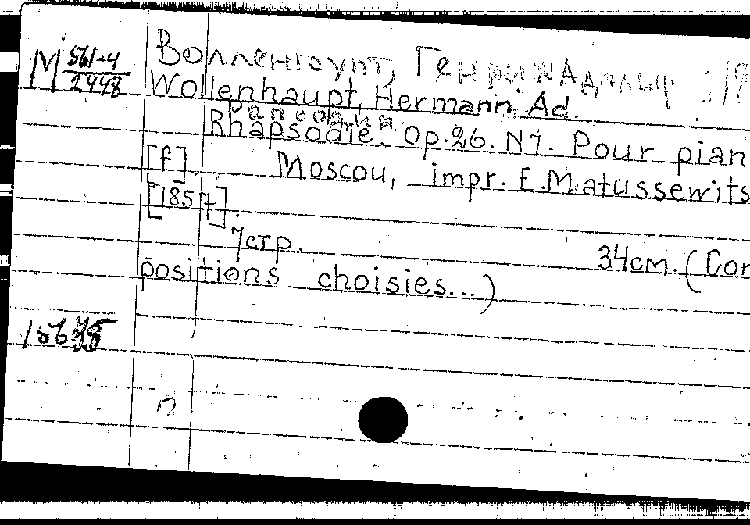 М 561-4
2448
Волленгаупт, Генрих Адальф
Wollenhaupt, Hermann Ad.
Рапсодия
Rhapsodie. Op.26. N1. Pour pian
[f] Moscou, impr. E. Matussewits
[185
7 стр. 34 см. (Com
positions choisies...)
п